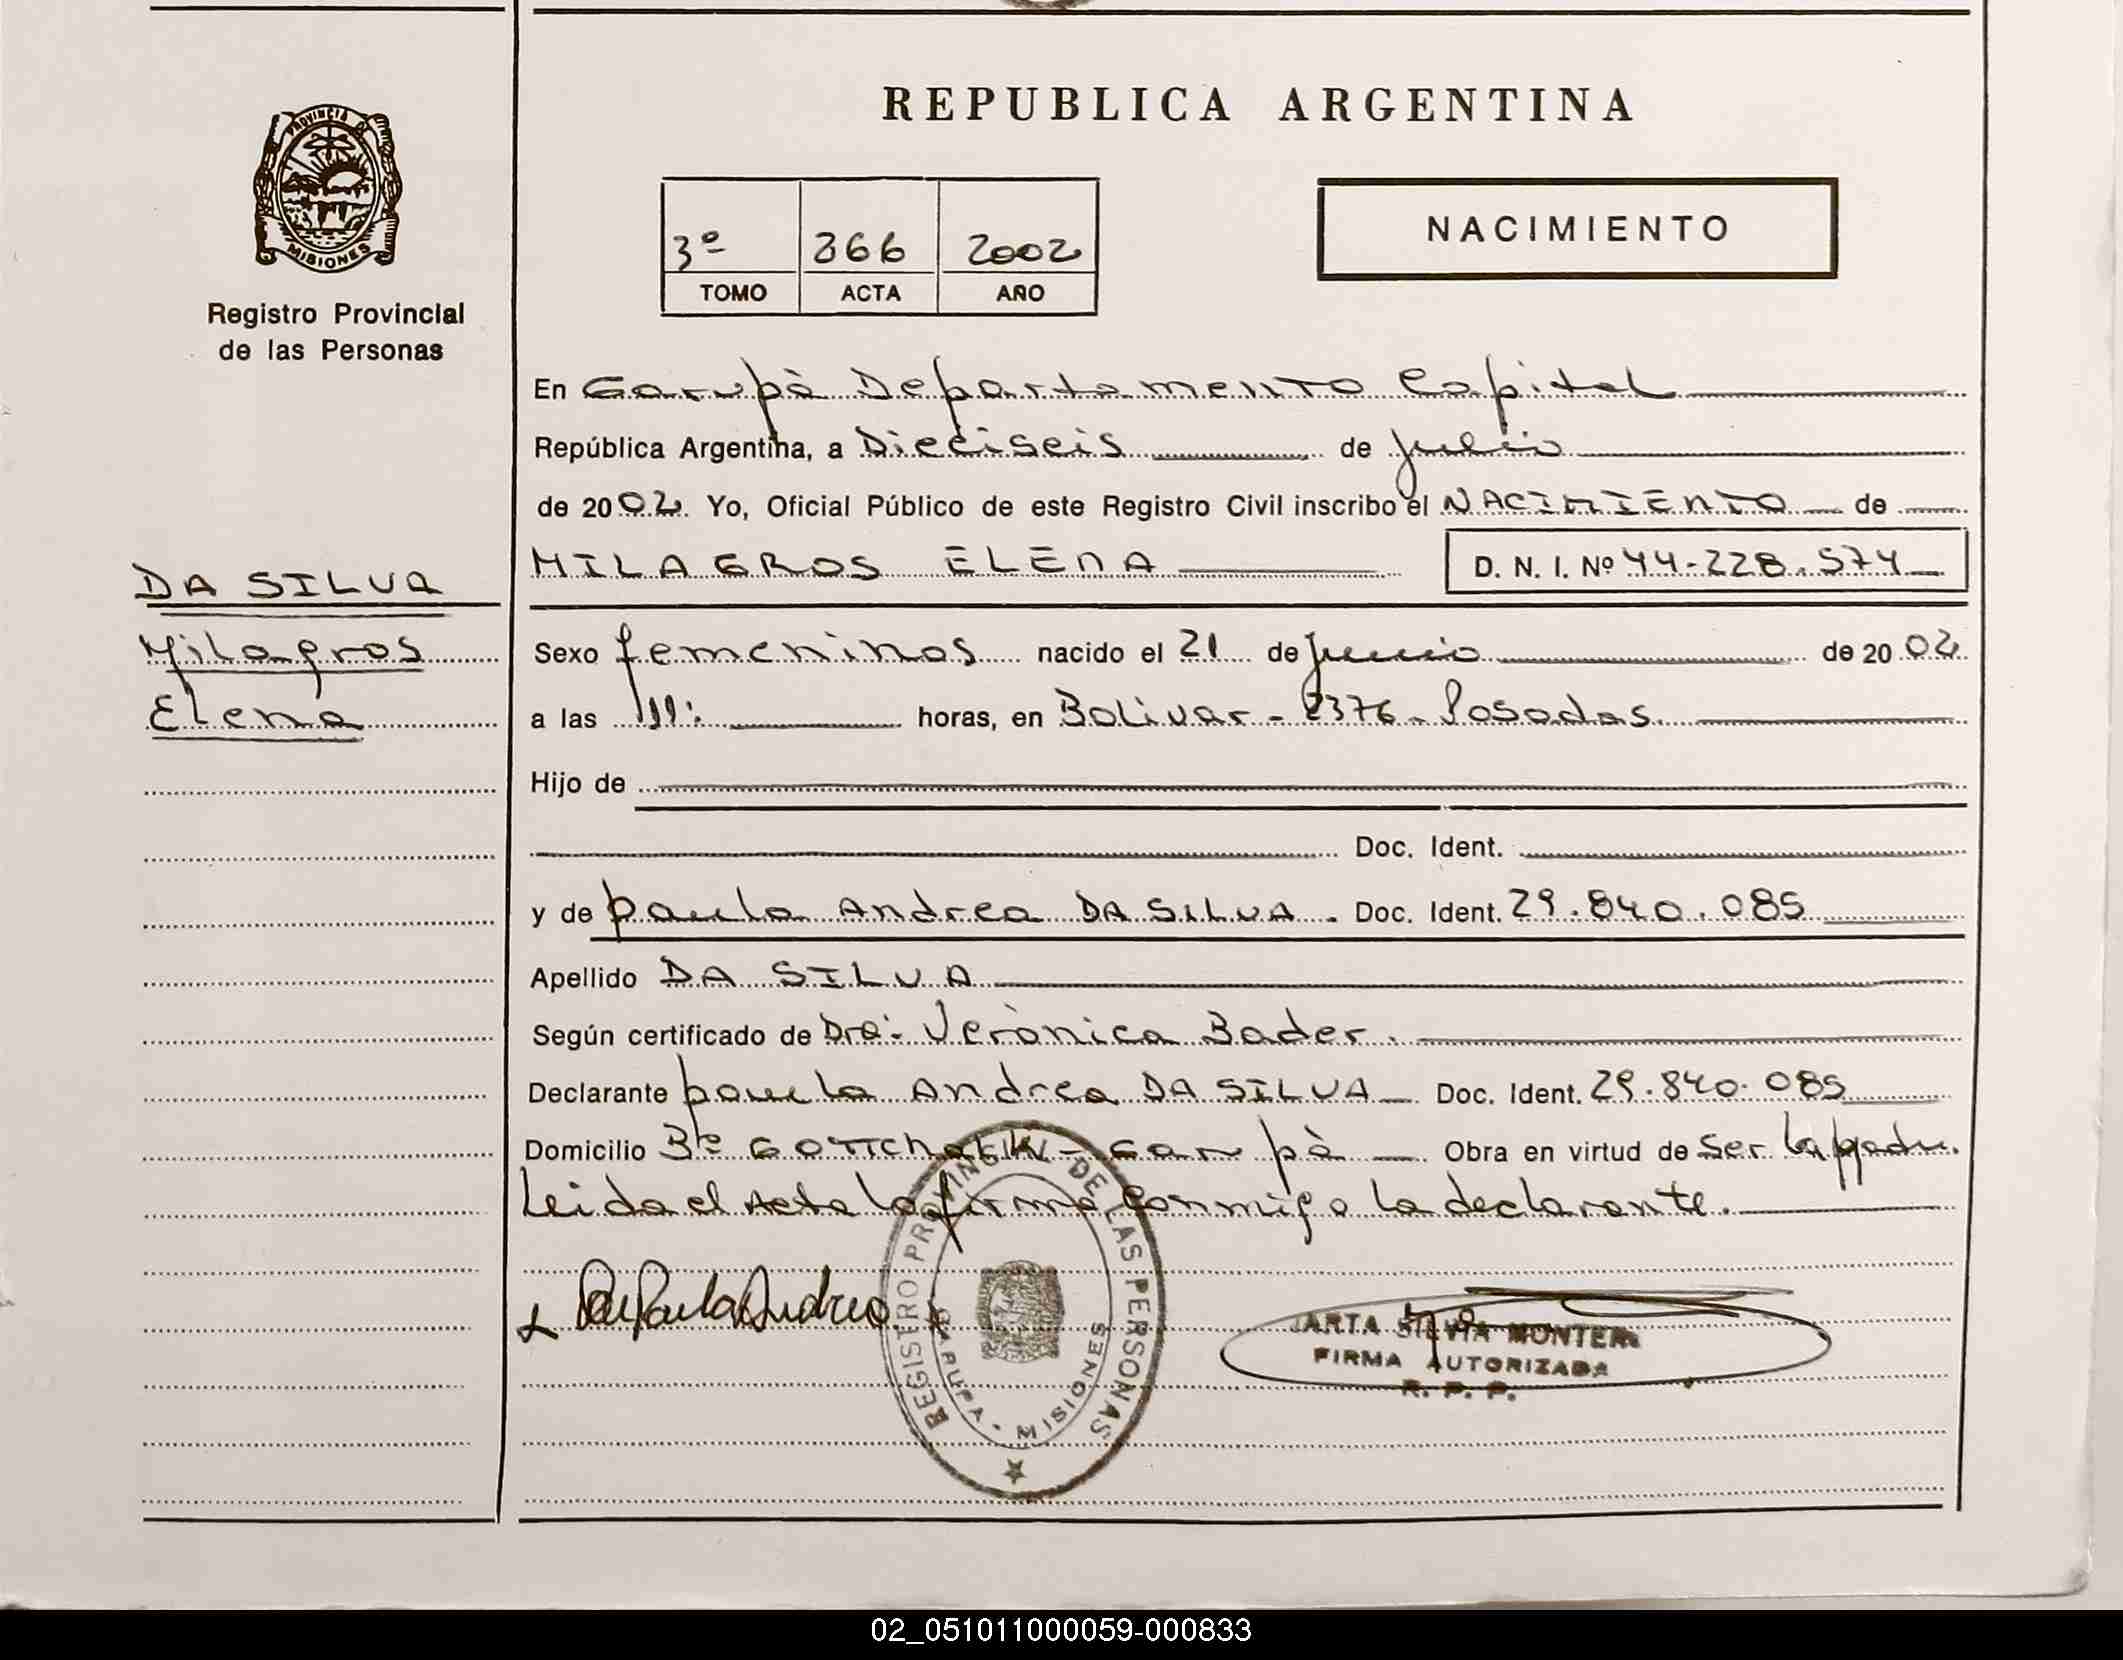 REPUBLICA ARGENTINA
PROVINCIA DE
MISIONES
Registro Provincial
de las Personas
3º 366 2002
TOMO ACTA AÑO
NACIMIENTO
En Garupà Departamento Capital
República Argentina, a Dieciseis de julio
de 2002. Yo, Oficial Público de este Registro Civil inscribo el NACIMIENTO de
MILAGROS ELENA D. N. I. Nº 44-228.574
DA SILVA
Milagros
Elena
Sexo femeninos nacido el 21 de junio de 2002
a las horas, en Bolivar - 2376 - Posadas
Hijo de
Doc. Ident.
y de paula Andrea DA SILVA. Doc. Ident. 29.840.085
Apellido DA SILVA
Según certificado de Dra: Verònica Bader.
Declarante paula Andrea DA SILVA Doc. Ident. 29.840.085
Domicilio Bº - Garupà Obra en virtud de ser la
Leida el Acta la firma conmigo la declarante.
Paula Andrea
REGISTRO PROVINCIAL DE LAS PERSONAS
GARUPA - MISIONES
ARTA SILVIA MONTER
FIRMA AUTORIZADA
R. P. P.
02_051011000059-000833